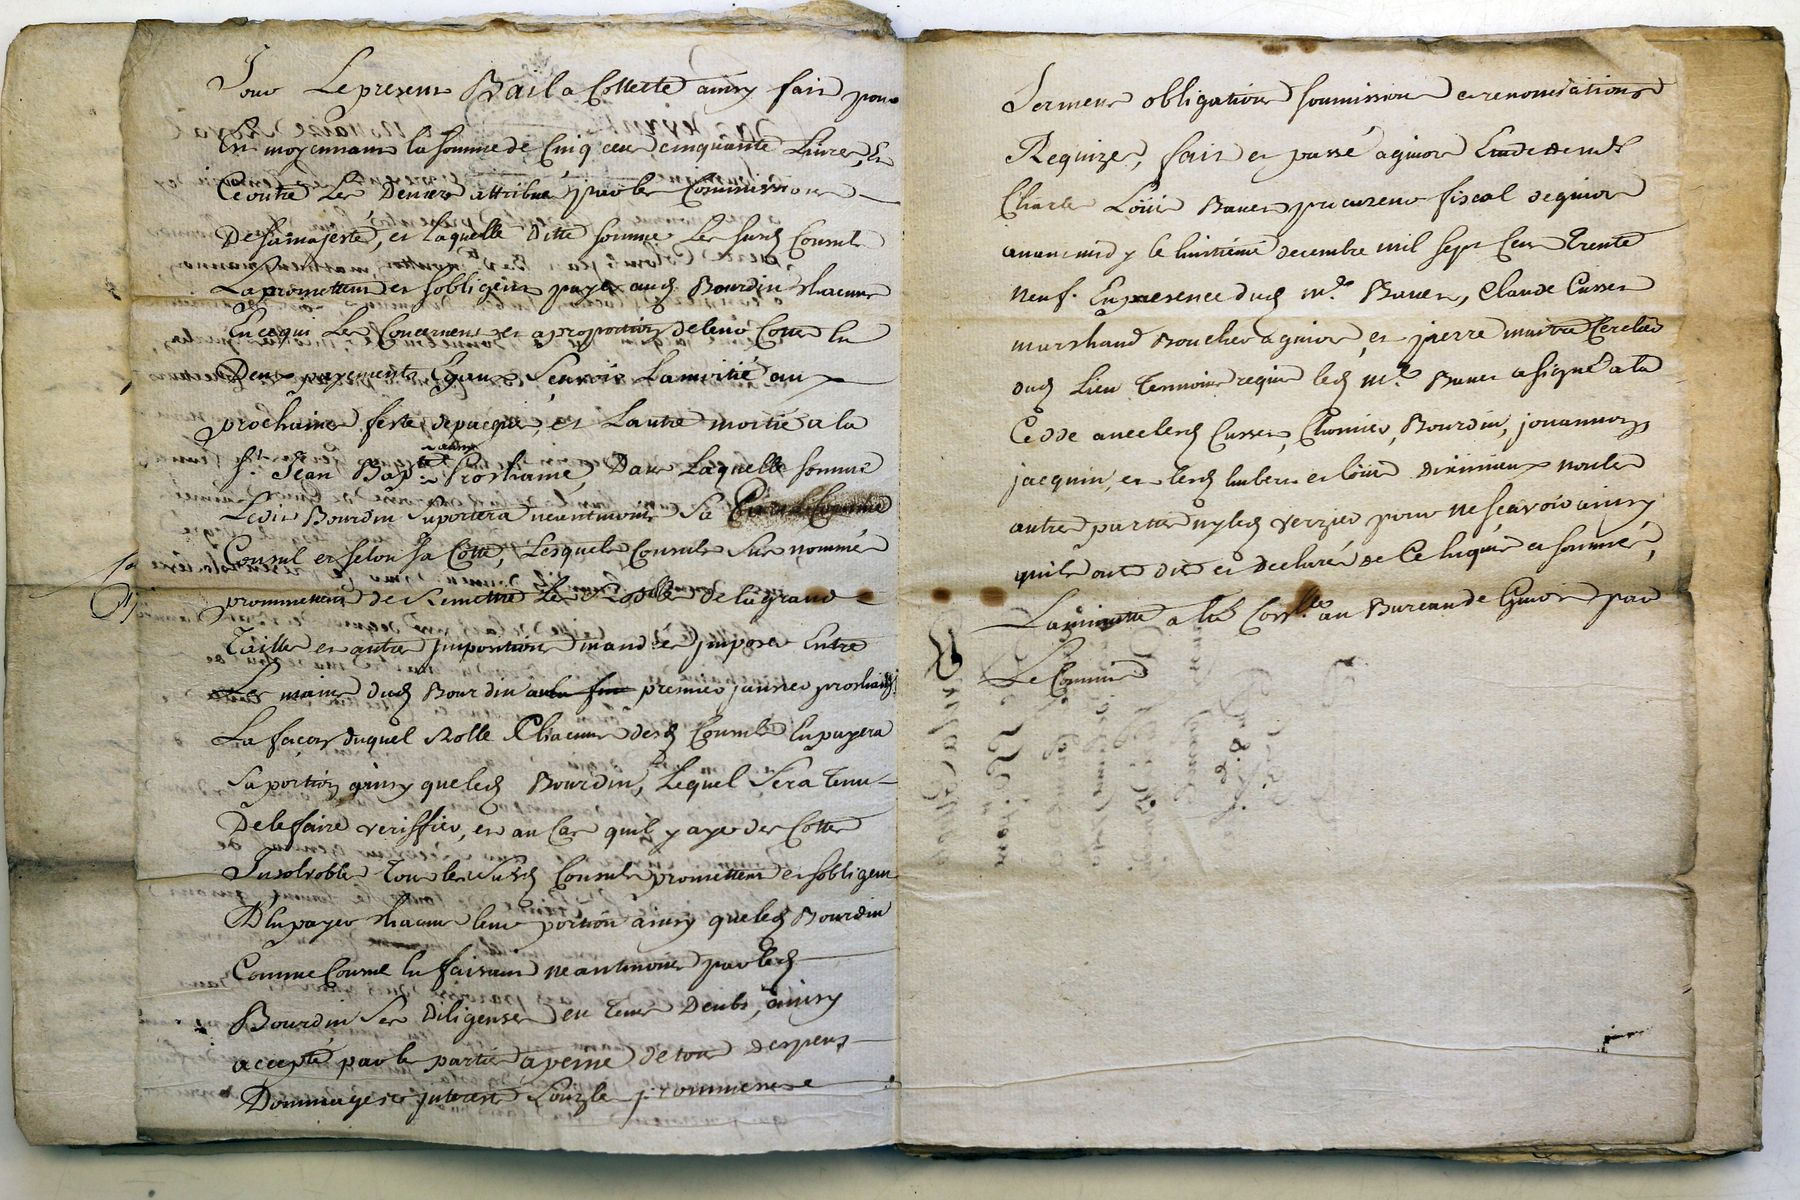 Sous Le present Bail a Collette ainsy fait pour
Et moyennant la somme de Cinq cens cinquante Livres, Et
Ce outre Les Deniers attribué par les Commissions
De sa majesté, et laquelle Ditte somme Les susd Consuls
La promettent et sobligent payer aud Bourdin chacuns
En ce qui Les Concernent et a proportion de leur Cotte En
Deux payements Egaux Scavoir La moitié aux
prochaines feste de pacque, et Lautre moitié a la
St Jean Bapte aussy Prochaine, Dans Laquelle somme
Ledit Bourdin suportera neantmoins Sa
Consul et selon sa Cotte, Lesquels Consuls sus nommés
prommettent de Remettre Les Rolle de la grand
Taille et autres jmpositions mandée jmposer Entre
Les mains dud Bourdin au premier janvier prochain
La façon duquel Rolle Chacuns desd Consuls En payera
Sa portion ainsy que led Bourdin, Lequel Sera tenu
De le faire veriffier, et au Cas quil y aye des Cottes
Insolvables Tous les Susd Consuls promettent et sobligent
D'En payer chacuns leur portion ainsy que led Bourdin
Comme Consul En faisant neantmoins par led
Bourdin Ses diligenses en tems Deub, ainsy
accepté par les parties a peine de tous despens
Dommages et jnterests Souz les prommesse
Serment obligations soumissions et renonciations
Requizes, fait et passé a givors Etude de me
Charles Loüis Bauer procureur fiscal de givors
avant midy le huitième decembre mil sept Cens Trente
neuf. En presence dud me Bauer, Claude Cusset
marchand Boucher a givors, et pierre maitre Cerclier
dud Lieu temoins requis led me Bauer a signé a la
Cedde avec lesd Cusset, Chomier, Bourdin, jouannon,
jacquin, et lesd hubert et loüis non les
autres parties ny led verzier pour ne scavoir ainsy
quils ont dit et declarés de Ce Enquis et sommés,
La minutte a été Conllée au Bureau de Givors par
Le Commis